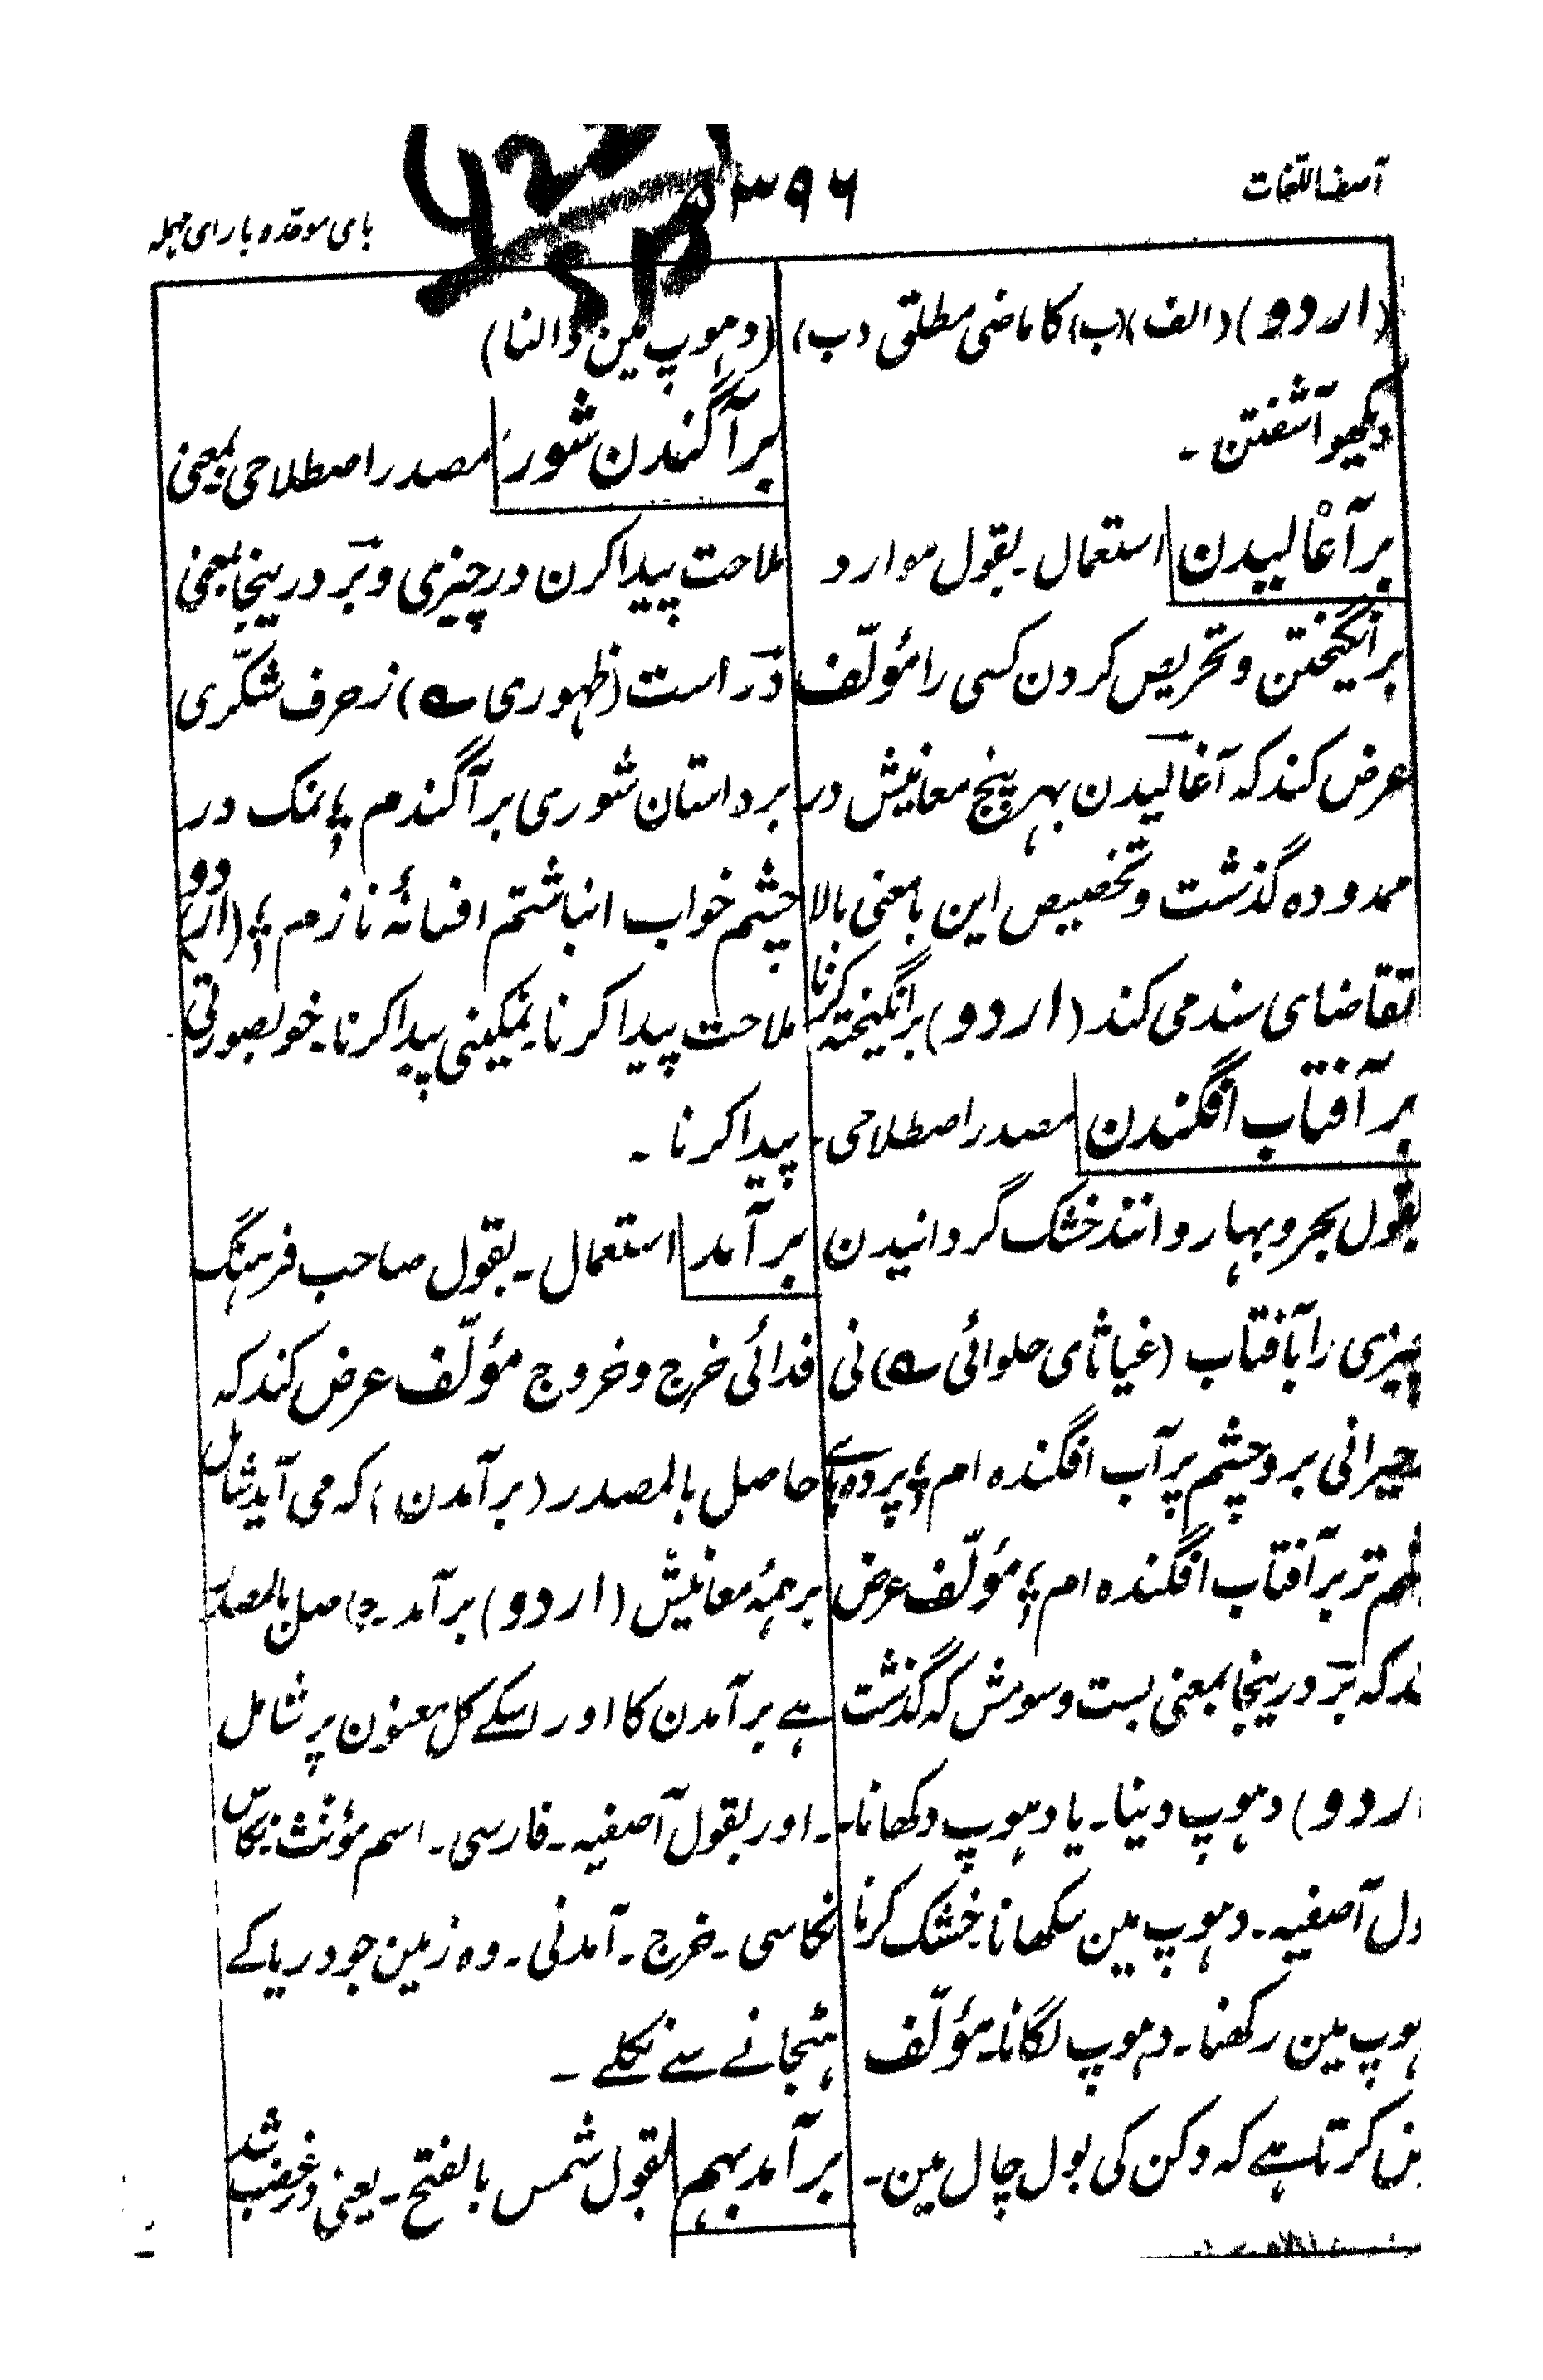 آصف اللغات
۵۳۹۶
بای موحّده با رای مہملہ
(اردو) (الف) (ب) کا ماضی مطلق (ب)
دیکھو آشفتن۔
برآغالیدن استعمال۔ بقول موارد
برانگیختن و تحریص کردن کسی را مؤلّف
عرض کند کہ آغالیدن بہر پنج معانیش در
ممدودہ گذشت و تخصیص این بامعنی بالا
تقاضای سند می کند (اردو) برانگیختہ کرنا
برآفتاب افگندن مصدر اصطلاحی۔
بقول بحر و بہار و انند خشک گردانیدن
چیزی را بآفتاب (غیاثای حلوائی ؎) نی
حیرانی بروچشم پرآب افگندہ ام ؛ پردہ ہای
چشم تر برآفتاب افگندہ ام ؛ مؤلّف عرض
کند کہ بَر درینجا بمعنی بست و سومش کہ گذشت
اردو) دہوپ دینا۔ یا دہوپ دکھانا۔
ول آصفیہ۔ دہوپ مین سکھانا خشک کرنا
ہوپ مین رکھنا۔ دہوپ لگانا۔ مؤلّف
ض کرتا ہے کہ دکن کی بول چال مین۔
(دہوپ مین ڈالنا)
برآگندن شور مصدر اصطلاحی بمعنی
ملاحت پیدا کرن درچیزی و بَر درینجا بمعنی
دَر است (ظہوری ؎) زحرف شکّری
برداستان شوری برآگندم ؛ نمک در
چشم خواب انباشتم افسانۂ نازم ؛ (اردو)
ملاحت پیدا کرنا۔ نمکینی پیدا کرنا۔ خوبصورتی
پیدا کرنا۔
برآمد استعمال۔ بقول صاحب فرہنگ
فدائی خرج و خروج مؤلّف عرض کند کہ
حاصل بالمصدر (برآمدن) کہ می آید شامل
برہمۂ معانیش (اردو) برآمد۔ حاصل بالمصدر
ہے برآمدن کا اور اسکے کل معنون پر شامل
۔ اور بقول آصفیہ۔ فارسی۔ اسم مؤنث۔ نکاس
نکاسی۔ خرج۔ آمدنی۔ وہ زمین جو دریا کے
ہٹجانے سے نکلے۔
برآمد بہم بقول شمس بالفتح۔ یعنی درغضب شد